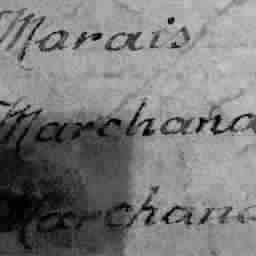 Marais
Marchand
Marchand